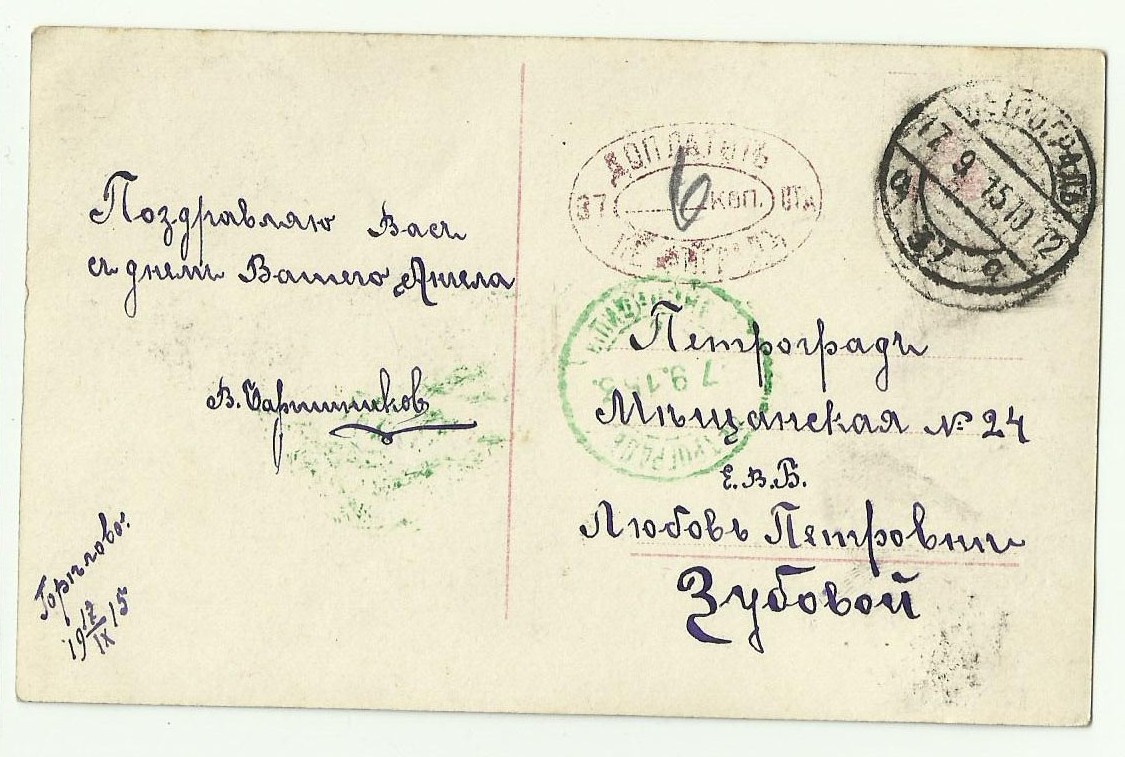 Поздравляю Васъ
съ днемъ Вашего Ангела
В. Барышников
Горѣлово.
19 17/IX 15
ДОПЛАТИТЬ
37 6 КОП. ОТД
ПЕТРОГРАДЪ
ПЕТРОГРАДЪ
17.9.15.10.12
7.9.15
Петроградъ
Мѣщанская № 24
Е.В.Б.
Любовь Петровнѣ
Зубовой